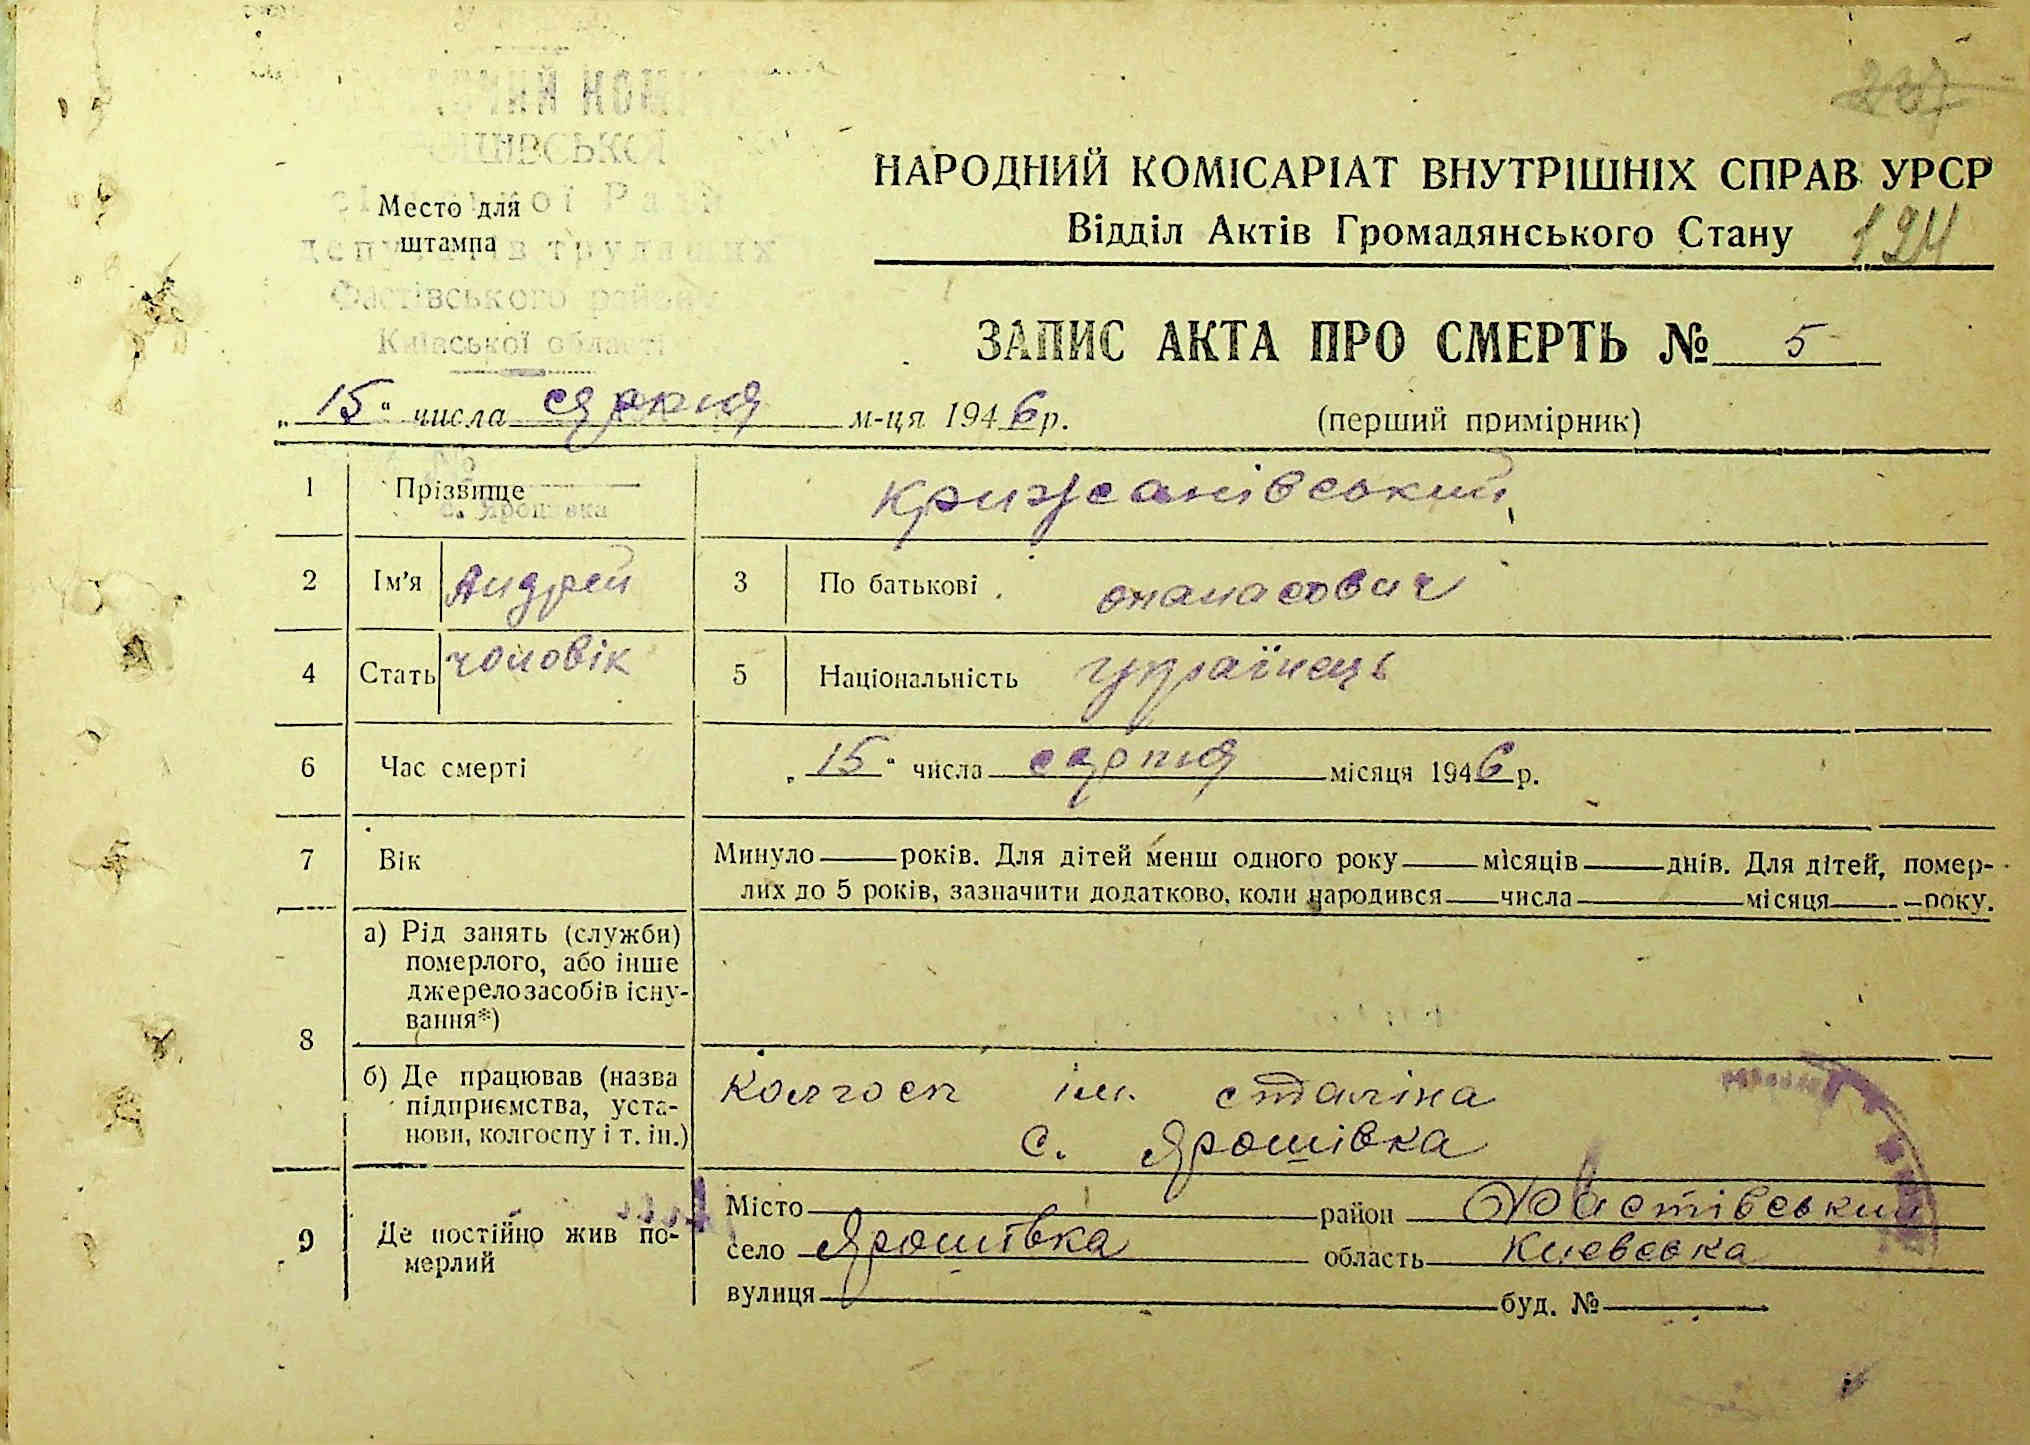 237
НАРОДНИЙ КОМІСАРІАТ ВНУТРІШНІХ СПРАВ УРСР
Відділ Актів Громадянського Стану 124
Место для
штампа
сільської Ради
депутатів трудящих
Фастівського району
Київської області
ЗАПИС АКТА ПРО СМЕРТЬ № 5
„15“ числа серпня м-ця 1946 р.
(перший примірник)
1 Прізвище Крижанівський
с. Ярошівка
2 Ім’я Андрей 3 По батькові опанасович
4 Стать чоловік 5 Національність українець
6 Час смерті „15“ числа серпня місяця 1946 р.
7 Вік Минуло — років. Для дітей менш одного року — місяців — днів. Для дітей, помер-
лих до 5 років, зазначити додатково, коли народився — числа — місяця — року.
8 а) Рід занять (служби)
померлого, або інше
джерело засобів існу-
вання*)
б) Де працював (назва
підприємства, уста-
нови, колгоспу і т. ін.)
Колгосп ім. сталіна
с. Ярошівка
9 Де постійно жив по-
мерлий
Місто район Фастівський
село Ярошівка область Киевська
вулиця буд. №